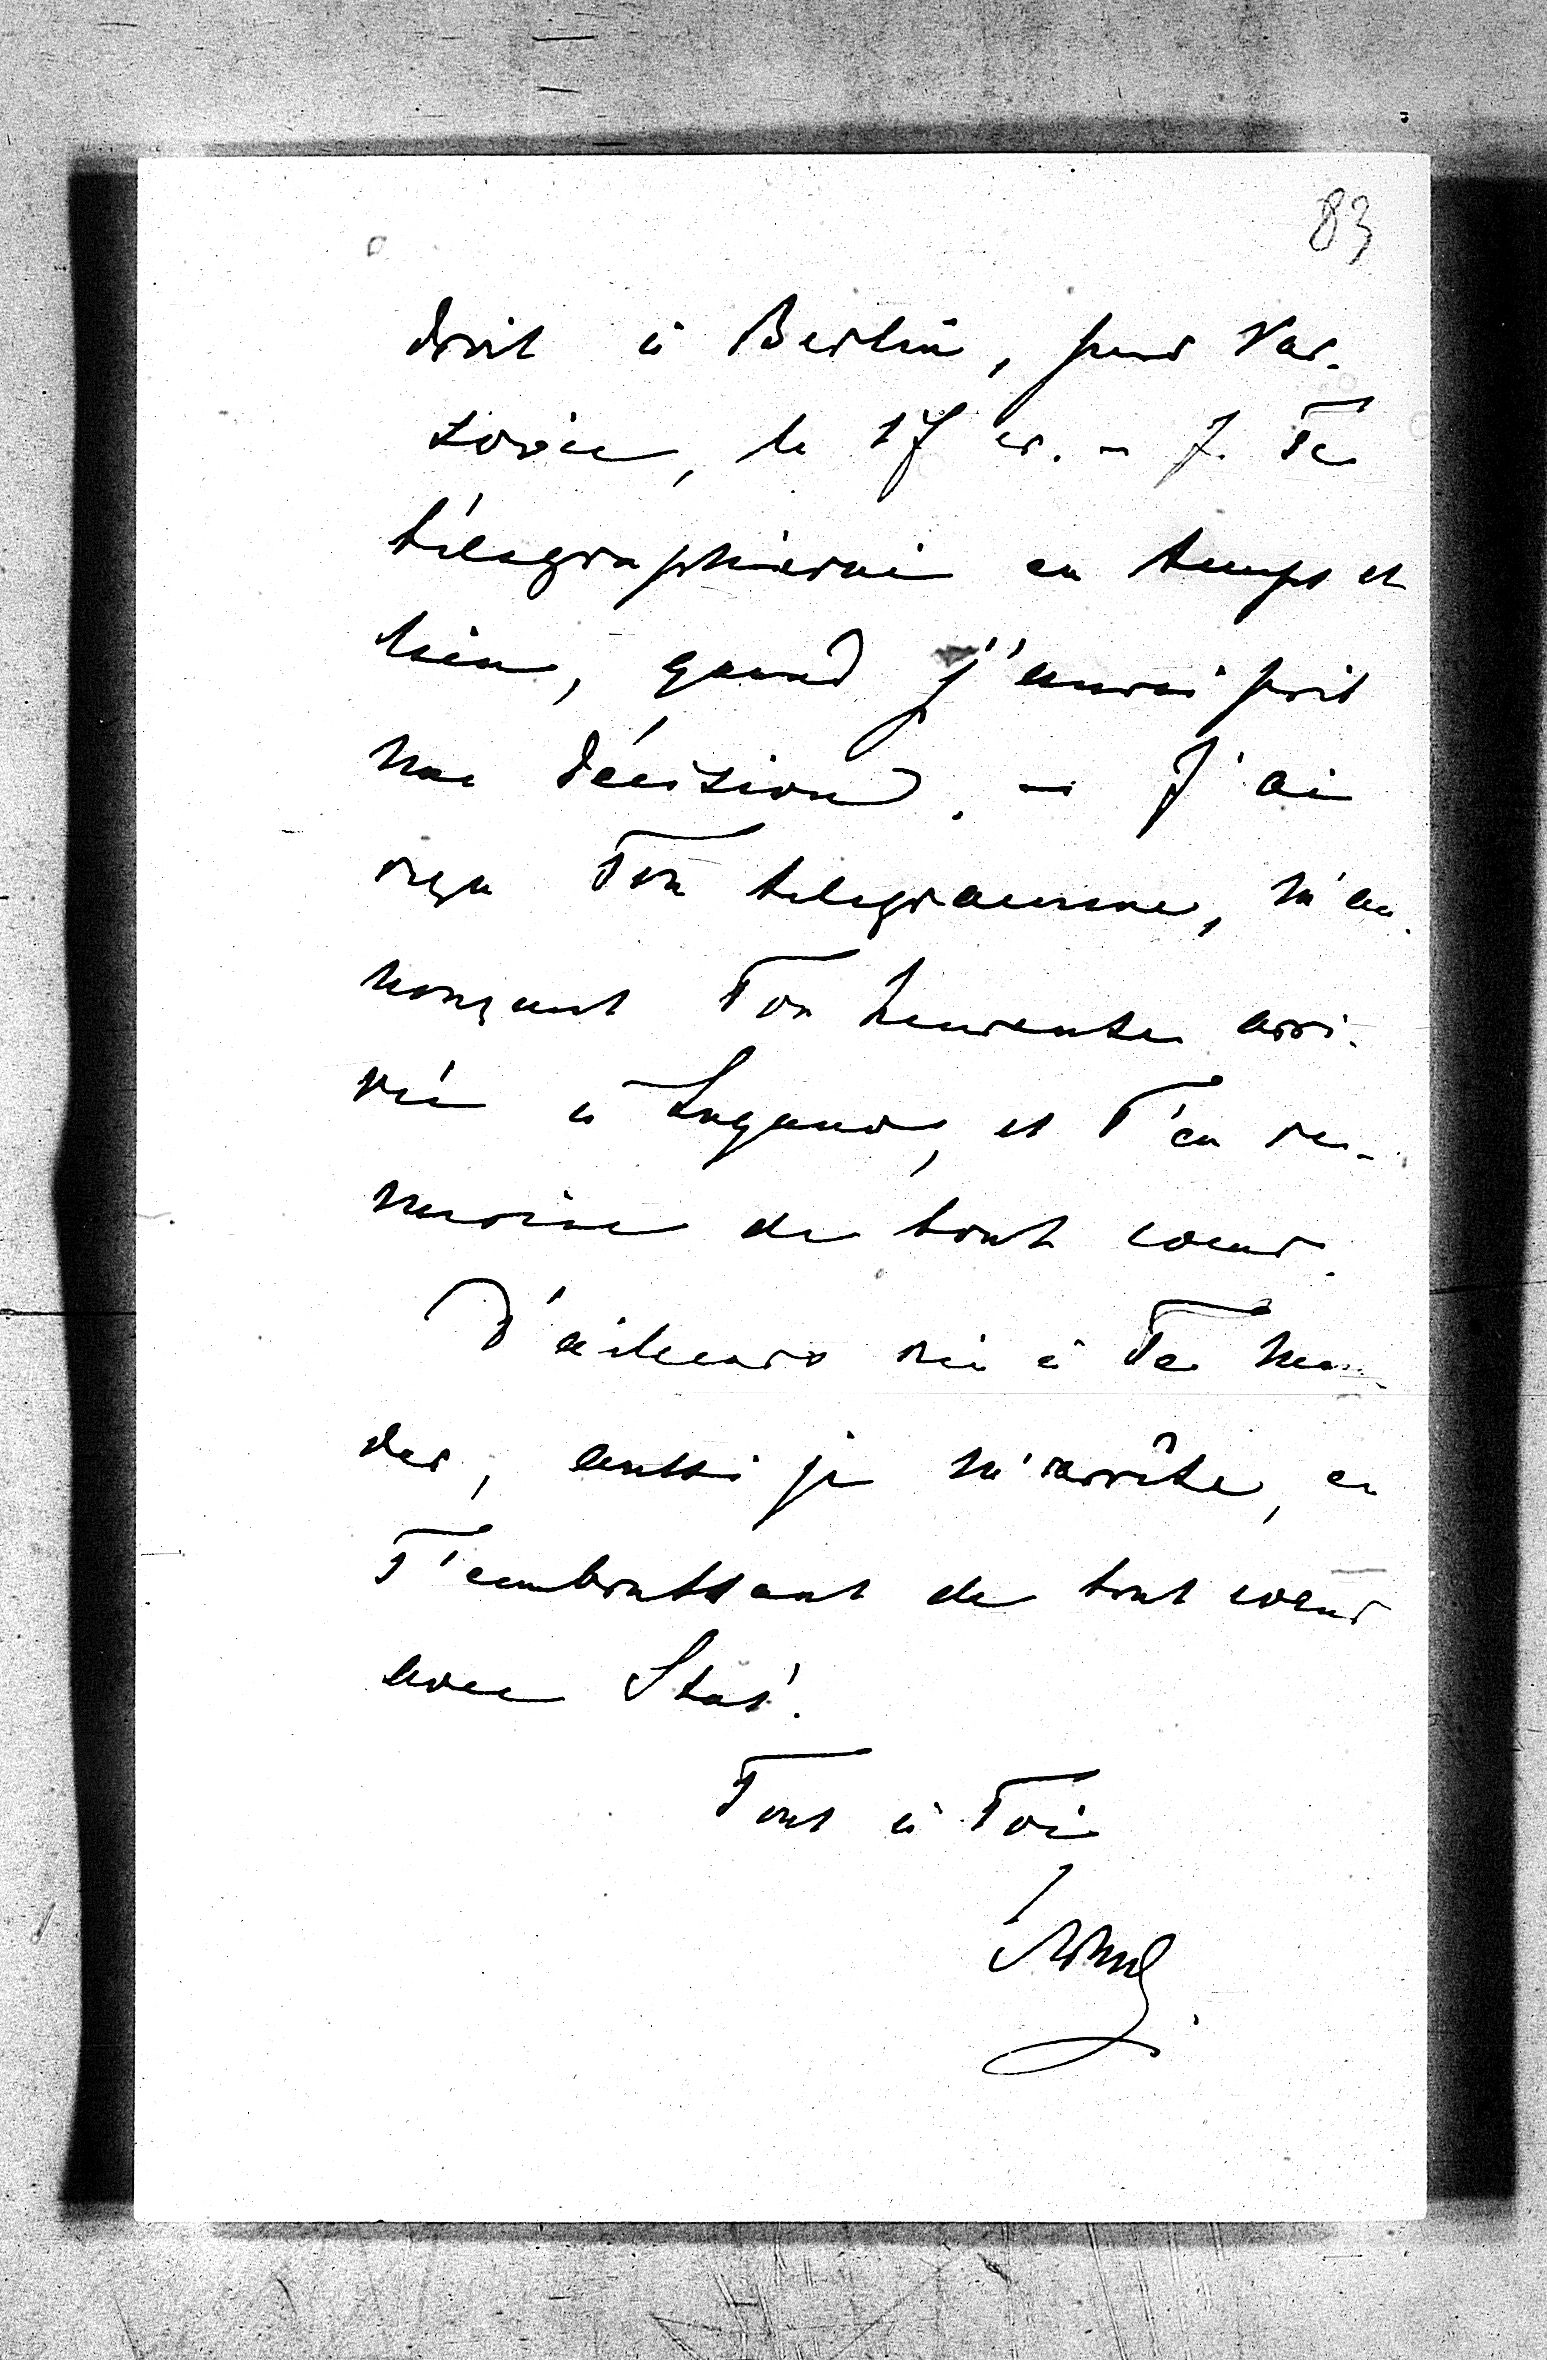 83
droit à Berlin, pour Var-
sovie, le 17 cr. – J. Te
télégraphierai en temps et
lieu, quand j'aurai pris
ma décision. – J'ai
reçu Ton telegramme, m'an-
nonçant Ton heureuse arri-
vée à Lugano, et T'en re-
mercie de tout coeur.
D'ailleurs rien à Te man-
der, aussi je m'arrête, en
T'embrassant de tout coeur
avec Staś.
Tout à Toi